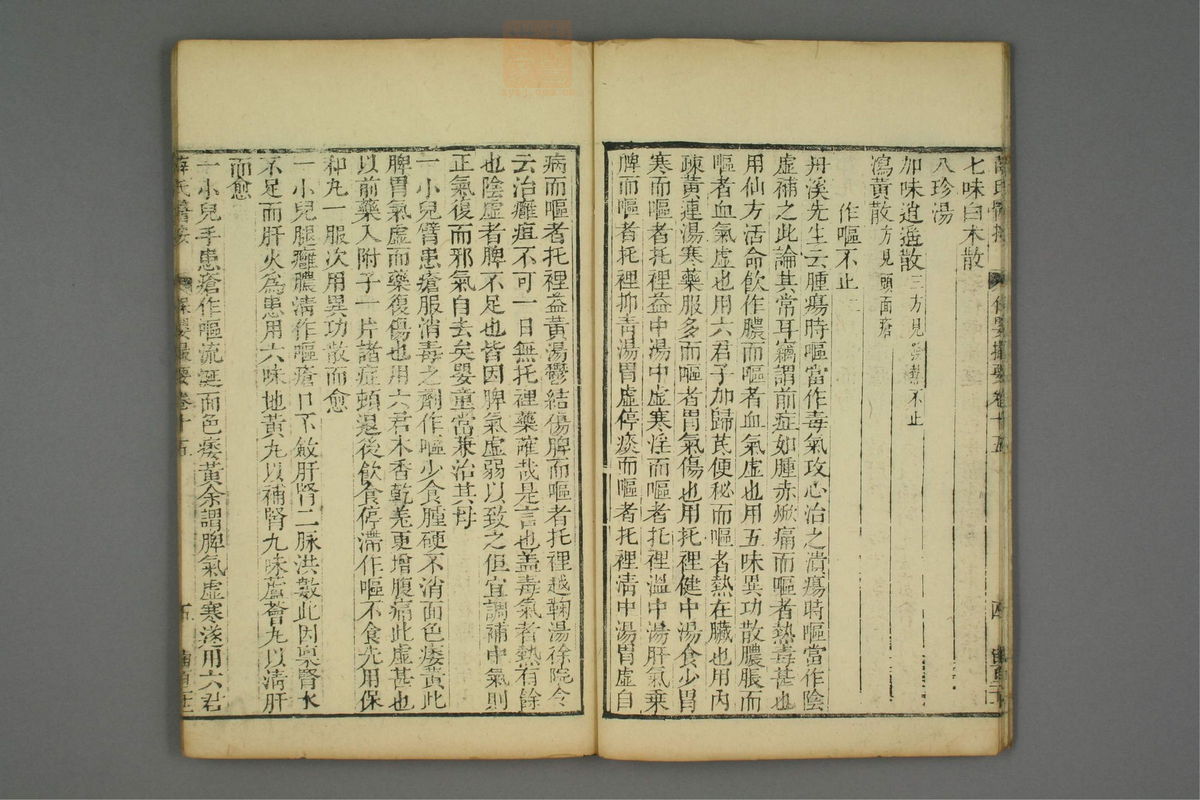 七味白木散
八珍湯
加味逍遙散三方見發熱不止
瀉黃散方見頭面瘡
作嘔不止
丹溪先生云腫瘍時嘔當作毒氣攻心治之潰瘍時嘔當作陰
虛補之此論其常耳竊謂前症如腫赤焮痛而嘔者熱毒甚也
用仙方活命飲作膿而嘔者血氣虛也用五味異功散膿脹而
嘔者血氣虛也用六君子加歸芪便秘而嘔者熱在臟也用內
疎黃連湯寒藥服多而嘔者胃氣傷也用托裡健中湯食少胃
寒而嘔者托裡益中湯中虛寒淫而嘔者托裡溫中湯肝氣乗
脾而嘔者托裡抑青湯胃虛停痰而嘔者托裡清中湯胃虛自
病而嘔者托裡益黃湯鬱結傷脾而嘔者托裡越鞠湯徐院令
云治癰疽不可一日無托裡藥確哉是言也盖毒氣者熱有餘
也陰虛者脾不足也皆因脾氣虛弱以致之但宜調補中氣則
正氣復而邪氣自去矣嬰童當兼治其母
一小兒臂患瘡服消毒之劑作嘔少食腫硬不消面色痿黃此
脾胃氣虛而藥復傷也用六君木香乾姜更增腹痛此虛甚也
以前藥入附子一片諸症頓退後飲食停滯作嘔不食先用保
和丸一服次用異功散而愈
一小兒腿癰膿清作嘔瘡口不斂肝腎二脉洪數此因稟腎水
不足而肝火為患用六味地黃丸以補腎九味蘆薈丸以清肝
而愈
一小兒手患瘡作嘔流涎面色痿黃余謂脾氣虛寒遂用六君
薛氏醫按 保嬰撮要 卷十五 五